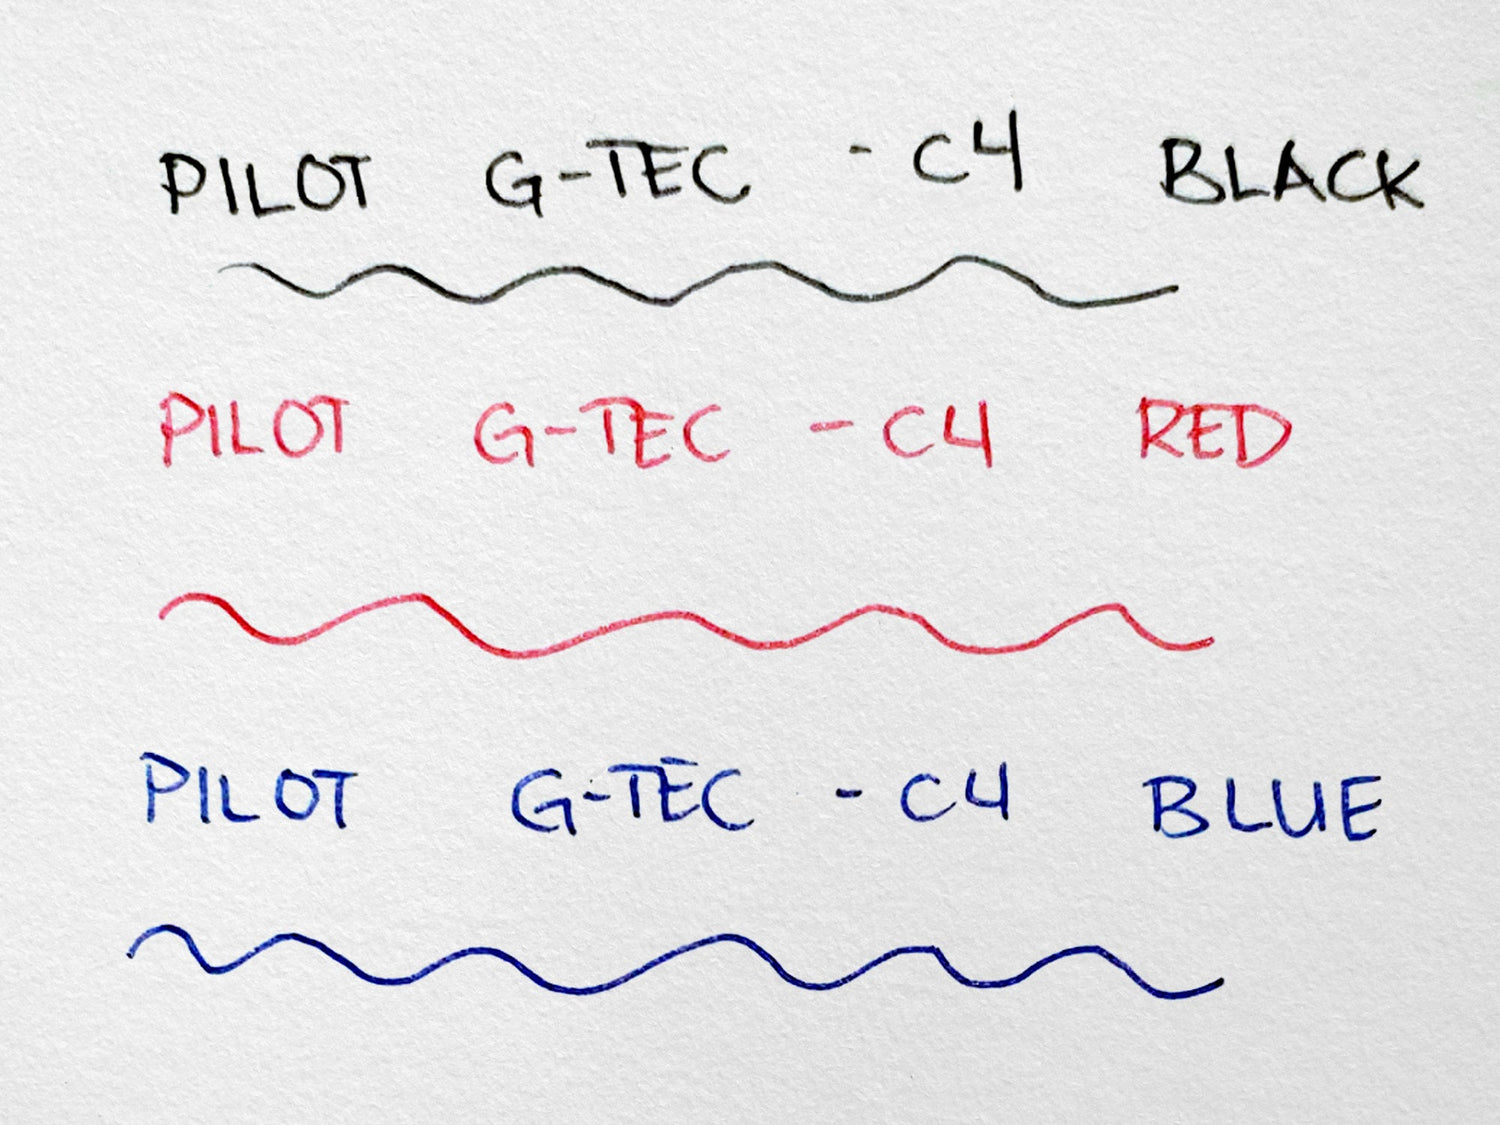 PILOT G-TEC - C4 BLACK
PILOT G-TEC - C4 RED
PILOT G-TEC - C4 BLUE